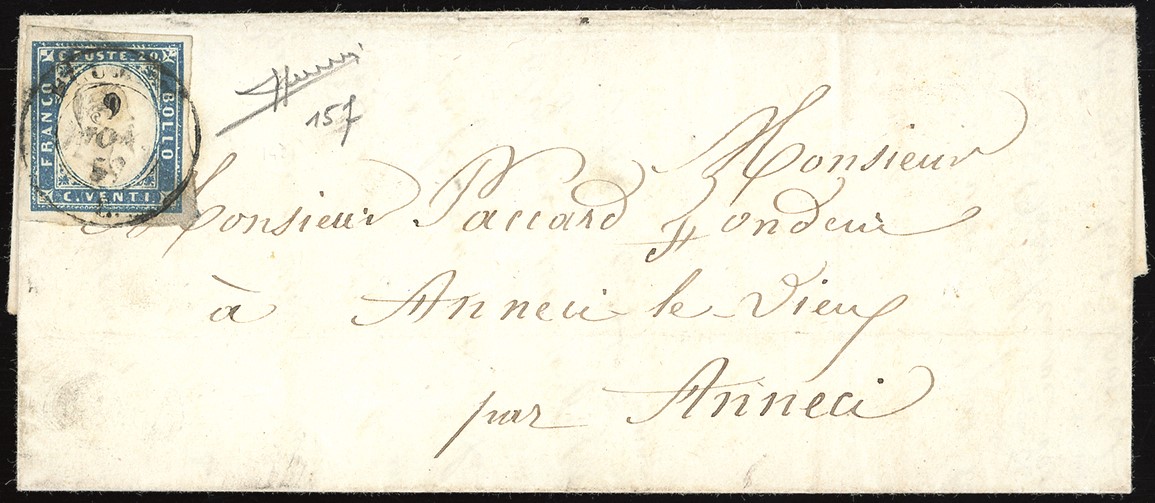 C. POSTE. 20
FRANCO
BOLLO
C. VENTI.
9
NOV
59
157
Monsieur
Monsieur Paccard Fondeur
à Anneci le Vieux
par Anneci